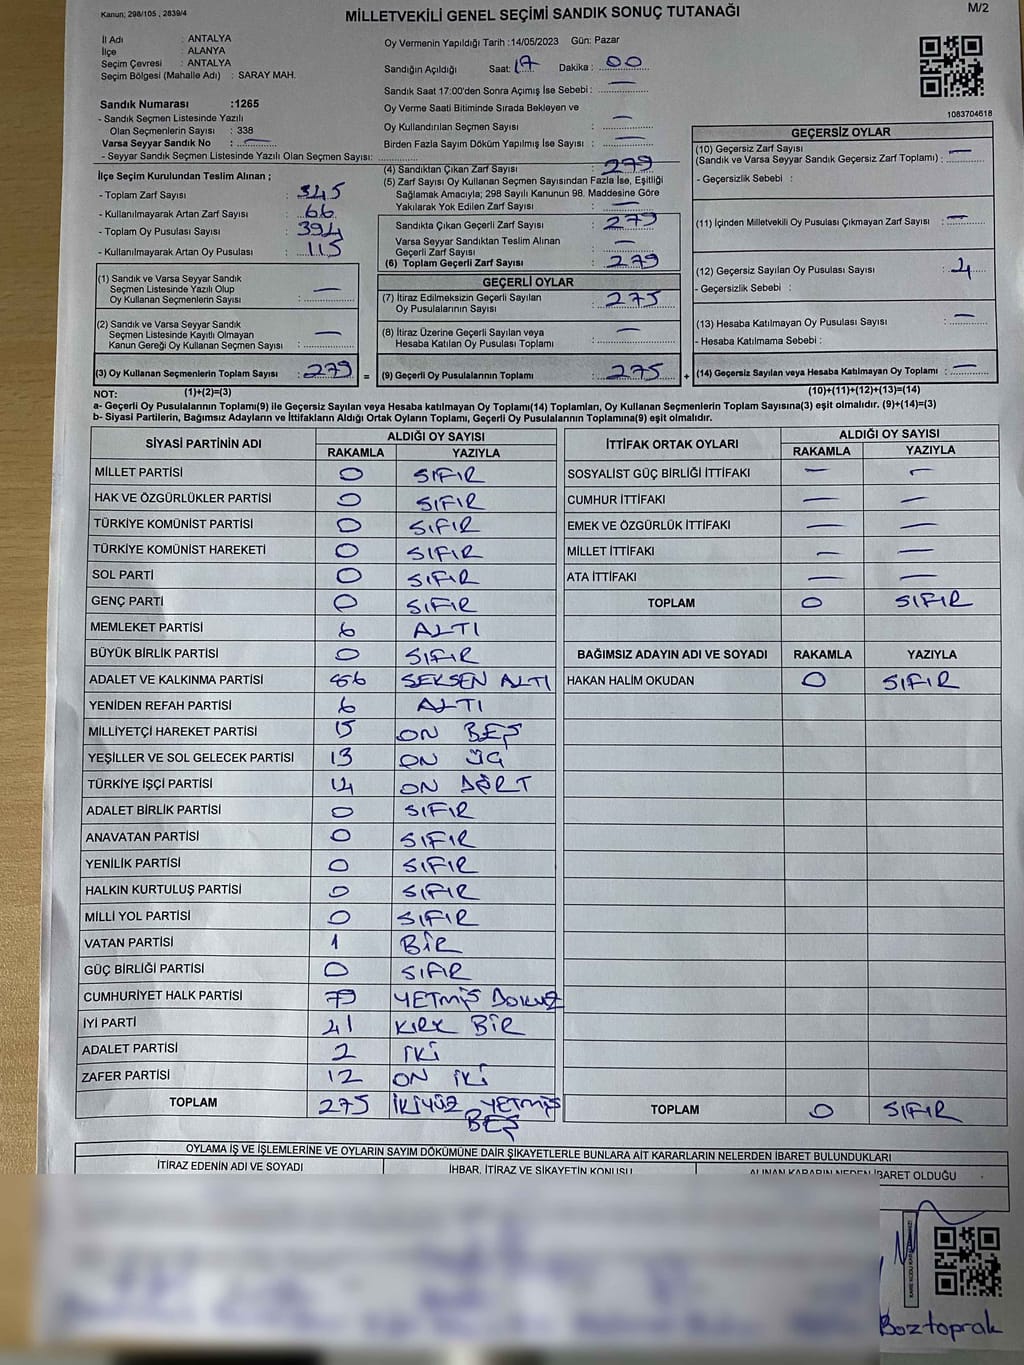 Kanun; 298/105 , 2839/4
MİLLETVEKİLİ GENEL SEÇİMİ SANDIK SONUÇ TUTANAĞI
M/2
İl Adı : ANTALYA
İlçe : ALANYA
Seçim Çevresi : ANTALYA
Seçim Bölgesi (Mahalle Adı) : SARAY MAH.
Sandık Numarası :1265
- Sandık Seçmen Listesinde Yazılı
Olan Seçmenlerin Sayısı : 338
Varsa Seyyar Sandık No : —
- Seyyar Sandık Seçmen Listesinde Yazılı Olan Seçmen Sayısı:
İlçe Seçim Kurulundan Teslim Alınan ;
- Toplam Zarf Sayısı : 345
- Kullanılmayarak Artan Zarf Sayısı : 66
- Toplam Oy Pusulası Sayısı : 394
- Kullanılmayarak Artan Oy Pusulası : 115
(1) Sandık ve Varsa Seyyar Sandık
Seçmen Listesinde Yazılı Olup
Oy Kullanan Seçmenlerin Sayısı : —
(2) Sandık ve Varsa Seyyar Sandık
Seçmen Listesinde Kayıtlı Olmayan
Kanun Gereği Oy Kullanan Seçmen Sayısı : —
(3) Oy Kullanan Seçmenlerin Toplam Sayısı : 279 =
Oy Vermenin Yapıldığı Tarih :14/05/2023 Gün: Pazar
Sandığın Açıldığı Saat: 17 Dakika : 00
Sandık Saat 17:00'den Sonra Açımış İse Sebebi : —
Oy Verme Saati Bitiminde Sırada Bekleyen ve
Oy Kullandırılan Seçmen Sayısı : —
Birden Fazla Sayım Döküm Yapılmış İse Sayısı : —
(4) Sandıktan Çıkan Zarf Sayısı : 279
(5) Zarf Sayısı Oy Kullanan Seçmen Sayısından Fazla İse, Eşitliği
Sağlamak Amacıyla; 298 Sayılı Kanunun 98. Maddesine Göre
Yakılarak Yok Edilen Zarf Sayısı : —
Sandıkta Çıkan Geçerli Zarf Sayısı : 279
Varsa Seyyar Sandıktan Teslim Alınan
Geçerli Zarf Sayısı : —
(6) Toplam Geçerli Zarf Sayısı : 279
GEÇERLİ OYLAR
(7) İtiraz Edilmeksizin Geçerli Sayılan
Oy Pusulalarının Sayısı : 275
(8) İtiraz Üzerine Geçerli Sayılan veya
Hesaba Katılan Oy Pusulası Toplamı : —
(9) Geçerli Oy Pusulalarının Toplamı : 275 +
1083704618
GEÇERSİZ OYLAR
(10) Geçersiz Zarf Sayısı
(Sandık ve Varsa Seyyar Sandık Geçersiz Zarf Toplamı) : —
- Geçersizlik Sebebi :
(11) İçinden Milletvekili Oy Pusulası Çıkmayan Zarf Sayısı : —
(12) Geçersiz Sayılan Oy Pusulası Sayısı : 4
- Geçersizlik Sebebi :
(13) Hesaba Katılmayan Oy Pusulası Sayısı : —
- Hesaba Katılmama Sebebi :
(14) Geçersiz Sayılan veya Hesaba Katılmayan Oy Toplamı : —
NOT: (1)+(2)=(3) (10)+(11)+(12)+(13)=(14)
a- Geçerli Oy Pusulalarının Toplamı(9) ile Geçersiz Sayılan veya Hesaba katılmayan Oy Toplamı(14) Toplamları, Oy Kullanan Seçmenlerin Toplam Sayısına(3) eşit olmalıdır. (9)+(14)=(3)
b- Siyasi Partilerin, Bağımsız Adayların ve İttifakların Aldığı Ortak Oyların Toplamı, Geçerli Oy Pusulalarının Toplamına(9) eşit olmalıdır.
SİYASİ PARTİNİN ADI ALDIĞI OY SAYISI
RAKAMLA YAZIYLA
MİLLET PARTİSİ 0 SIFIR
HAK VE ÖZGÜRLÜKLER PARTİSİ 0 SIFIR
TÜRKİYE KOMÜNİST PARTİSİ 0 SIFIR
TÜRKİYE KOMÜNİST HAREKETİ 0 SIFIR
SOL PARTİ 0 SIFIR
GENÇ PARTİ 0 SIFIR
MEMLEKET PARTİSİ 6 ALTI
BÜYÜK BİRLİK PARTİSİ 0 SIFIR
ADALET VE KALKINMA PARTİSİ 86 SEKSEN ALTI
YENİDEN REFAH PARTİSİ 6 ALTI
MİLLİYETÇİ HAREKET PARTİSİ 15 ON BEŞ
YEŞİLLER VE SOL GELECEK PARTİSİ 13 ON ÜÇ
TÜRKİYE İŞÇİ PARTİSİ 14 ON DÖRT
ADALET BİRLİK PARTİSİ 0 SIFIR
ANAVATAN PARTİSİ 0 SIFIR
YENİLİK PARTİSİ 0 SIFIR
HALKIN KURTULUŞ PARTİSİ 0 SIFIR
MİLLİ YOL PARTİSİ 0 SIFIR
VATAN PARTİSİ 1 BİR
GÜÇ BİRLİĞİ PARTİSİ 0 SIFIR
CUMHURİYET HALK PARTİSİ 79 YETMİŞ DOKUZ
İYİ PARTİ 41 KIRK BİR
ADALET PARTİSİ 2 İKİ
ZAFER PARTİSİ 12 ON İKİ
TOPLAM 275 İKİYÜZ YETMİŞ
BEŞ
İTTİFAK ORTAK OYLARI ALDIĞI OY SAYISI
RAKAMLA YAZIYLA
SOSYALİST GÜÇ BİRLİĞİ İTTİFAKI — —
CUMHUR İTTİFAKI — —
EMEK VE ÖZGÜRLÜK İTTİFAKI — —
MİLLET İTTİFAKI — —
ATA İTTİFAKI — —
TOPLAM 0 SIFIR
BAĞIMSIZ ADAYIN ADI VE SOYADI RAKAMLA YAZIYLA
HAKAN HALİM OKUDAN 0 SIFIR
TOPLAM 0 SIFIR
OYLAMA İŞ VE İŞLEMLERİNE VE OYLARIN SAYIM DÖKÜMÜNE DAİR ŞİKAYETLERLE BUNLARA AİT KARARLARIN NELERDEN İBARET BULUNDUKLARI
İTİRAZ EDENİN ADI VE SOYADI İHBAR, İTİRAZ VE ŞİKAYETİN KONUSU ALINAN KARARIN NEDEN İBARET OLDUĞU
Boztoprak